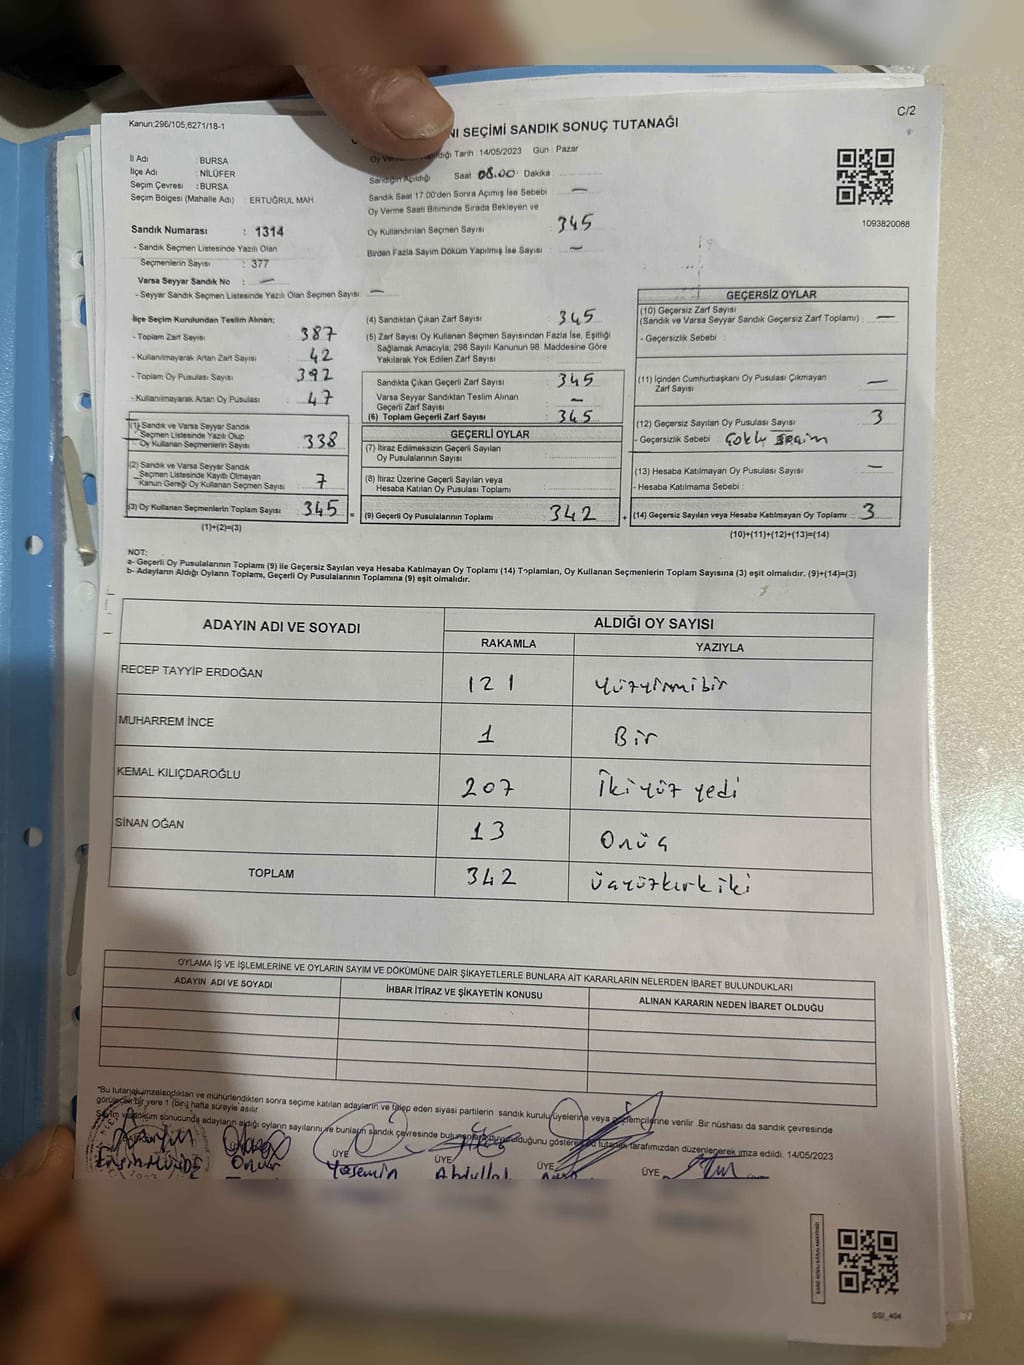 C/2
Kanun,298/105,6271/18-1
NI SEÇİMİ SANDIK SONUÇ TUTANAĞI
Tarih :14/05/2023 Gün : Pazar
İl Adı : BURSA
İlçe Adı : NİLÜFER
Seçim Çevresi : BURSA
Seçim Bölgesi (Mahalle Adı) ERTUĞRUL MAH.
Sandığın Açıldığı Saat 08.00 Dakika
Sandık Saat 17.00'den Sonra Açımış İse Sebebi —
Oy Verme Saati Bitiminde Sırada Bekleyen ve
Oy Kullandırılan Seçmen Sayısı : 345
Birden Fazla Sayım Döküm Yapılmış İse Sayısı : —
1093820088
Sandık Numarası : 1314
- Sandık Seçmen Listesinde Yazılı Olan
Seçmenlerin Sayısı : 377
Varsa Seyyar Sandık No : —
- Seyyar Sandık Seçmen Listesinde Yazılı Olan Seçmen Sayısı : —
İlçe Seçim Kurulundan Teslim Alınan;
- Toplam Zarf Sayısı : 387
- Kullanılmayarak Artan Zarf Sayısı : 42
- Toplam Oy Pusulası Sayısı : 392
- Kullanılmayarak Artan Oy Pusulası : 47
(1) Sandık ve Varsa Seyyar Sandık
Seçmen Listesinde Yazılı Olup
Oy Kullanan Seçmenlerin Sayısı : 338
(2) Sandık ve Varsa Seyyar Sandık
Seçmen Listesinde Kayıtlı Olmayan
Kanun Gereği Oy Kullanan Seçmen Sayısı : 7
(3) Oy Kullanan Seçmenlerin Toplam Sayısı : 345
(1)+(2)=(3)
(4) Sandıktan Çıkan Zarf Sayısı : 345
(5) Zarf Sayısı Oy Kullanan Seçmen Sayısından Fazla İse, Eşitliği
Sağlamak Amacıyla; 298 Sayılı Kanunun 98. Maddesine Göre
Yakılarak Yok Edilen Zarf Sayısı
Sandıkta Çıkan Geçerli Zarf Sayısı : 345
Varsa Seyyar Sandıktan Teslim Alınan
Geçerli Zarf Sayısı : —
(6) Toplam Geçerli Zarf Sayısı : 345
GEÇERLİ OYLAR
(7) İtiraz Edilmeksizin Geçerli Sayılan
Oy Pusulalarının Sayısı
(8) İtiraz Üzerine Geçerli Sayılan ve
Hesaba Katılan Oy Pusulası Toplamı
= (9) Geçerli Oy Pusulalarının Toplamı : 342
GEÇERSİZ OYLAR
(10) Geçersiz Zarf Sayısı
(Sandık ve Varsa Seyyar Sandık Geçersiz Zarf Toplamı) : —
- Geçersizlik Sebebi :
(11) İçinden Cumhurbaşkanı Oy Pusulası Çıkmayan
Zarf Sayısı : —
(12) Geçersiz Sayılan Oy Pusulası Sayısı : 3
- Geçersizlik Sebebi : Çoklu Seçim
(13) Hesaba Katılmayan Oy Pusulası Sayısı : —
- Hesaba Katılmama Sebebi :
+ (14) Geçersiz Sayılan veya Hesaba Katılmayan Oy Toplamı : 3
(10)+(11)+(12)+(13)=(14)
NOT:
a- Geçerli Oy Pusulalarının Toplamı (9) ile Geçersiz Sayılan veya Hesaba Katılmayan Oy Toplamı (14) Toplamları, Oy Kullanan Seçmenlerin Toplam Sayısına (3) eşit olmalıdır. (9)+(14)=(3)
b- Adayların Aldığı Oyların Toplamı, Geçerli Oy Pusulalarının Toplamına (9) eşit olmalıdır.
ADAYIN ADI VE SOYADI ALDIĞI OY SAYISI
RAKAMLA YAZIYLA
RECEP TAYYİP ERDOĞAN 121 Yüzyirmibir
MUHARREM İNCE 1 Bir
KEMAL KILIÇDAROĞLU 207 İkiyüz yedi
SİNAN OĞAN 13 Onüç
TOPLAM 342 Üçyüzkırkiki
OYLAMA İŞ VE İŞLEMLERİNE VE OYLARIN SAYIM VE DÖKÜMÜNE DAİR ŞİKAYETLERLE BUNLARA AİT KARARLARIN NELERDEN İBARET BULUNDUKLARI
ADAYIN ADI VE SOYADI İHBAR İTİRAZ VE ŞİKAYETİN KONUSU ALINAN KARARIN NEDEN İBARET OLDUĞU
*Bu tutanak imzalandıktan ve mühürlendikten sonra seçime katılan adayların ve talep eden siyasi partilerin sandık kurulu üyelerine veya gözlemcilerine verilir. Bir nüshası da sandık çevresinde
görülecek bir yere 1 (bir) hafta süreyle asılır.
Sayım ve döküm sonucunda adayların aldığı oyların sayılarını ve bunların sandık çevresinde duyurulduğunu gösteren tutanak tarafımızdan düzenlenerek imza edildi. 14/05/2023
ÜYE ÜYE ÜYE ÜYE
Onur Yasemin Abdullah
SSI_404